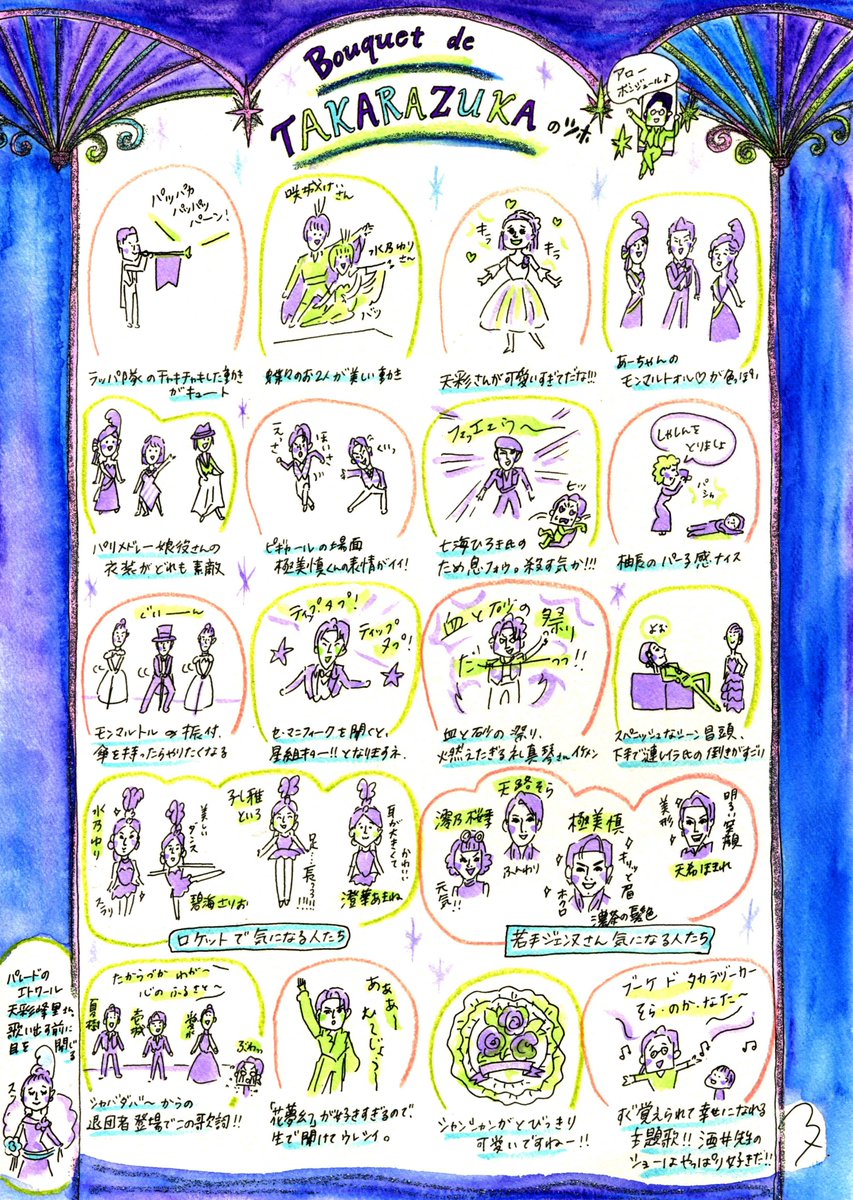 Bouquet de
TAKARAZUKA のツボ
アロー
ボンジュールよ
パッパカ
パッパッ
パーン!
ラッパ隊のチャキチャキした動き
がキュート
咲城けいさん
水乃ゆり
さん
バッ
蝶々のお2人が美しい動き
キラ
キラ
天彩さんが可愛いすぎてだな!!!
あーちゃんの
モンマルトオル♡が色っぽい
パリメドレー娘役さんの
衣装がどれも素敵
えっさ
ほいさ
くいっ
ピギャールの場面
極美慎くんの表情がイイ!
フゥエェゥ〜
ヒッ
七海ひろき氏の
ため息フォウ。殺す気か!!!
しゃしんを
とりましょ
パシャ
柚長のパー子感ナイス
ぐいーーん
モンマルトルの振付、
傘を持ったらやりたくなる
ティップ・タプ!
ティップ
タプ!
セ・マニフィークを聞くと、
星組キター!!となりますネ
血と砂の祭り
だーーっっ!!
血と砂の祭り、
燃えたぎる礼真琴さんイケメン
よお
スペニッシュなシーン冒頭、
下手で連レイラ氏の倒さがすごい
水乃ゆり
スラリ
美しい
ダンス
碧海さりお
子し雅
といろ
足…長っっ!!!!
耳が大きくて
かわいい
澄華あまね
ロケットで気になる人たち
澪乃桜季
元気!!
天路そら
ふんわり
極美慎
キリッと眉
ホクロ
美形
明るい笑顔
天希ほまれ
若手ジェンヌさん気になる人たち
パレードの
エトワール
天彩峰里さん、
歌い出す前に
目を閉じる
スゥ
たからづか わが〜
心のふるさと〜
夏樹
壱城
愛水
ぶわっ
シャバダバ〜からの
退団者登場でこの歌詞!!
ああぁ〜
「花夢幻」が好きすぎるので、
生で聞けてウレシイ。
シャンシャンがとびっきり
可愛いですねー!!
ブーケ ド タカラヅーカー
そら・のか・なた〜
すぐ覚えられて幸せになれる
主題歌!! 酒井先生の
ショーはやっぱり好きだ!!